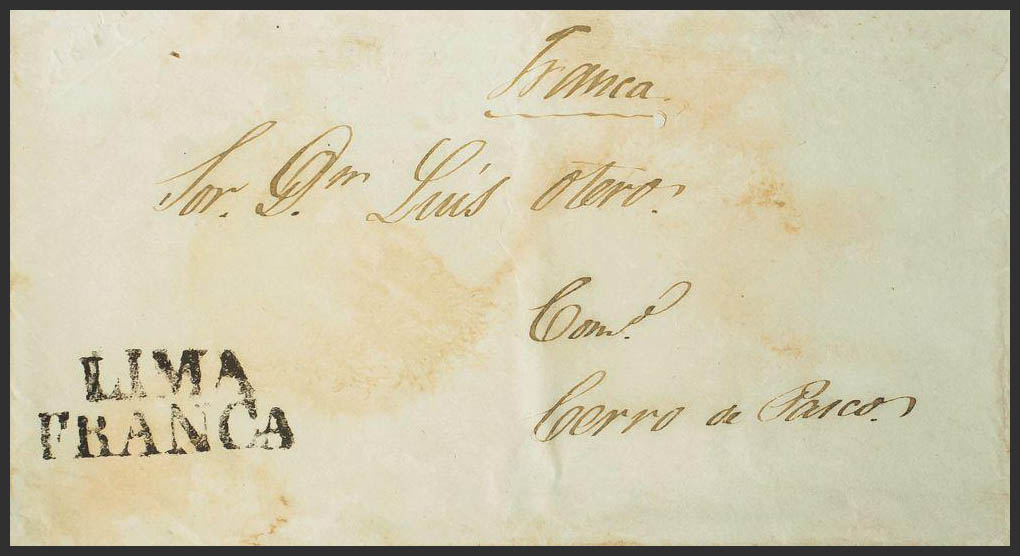 Franca
Sor. Dn. Dn Luis Otero.
Como.
Cerro de Pasco.
LIMA
FRANCA